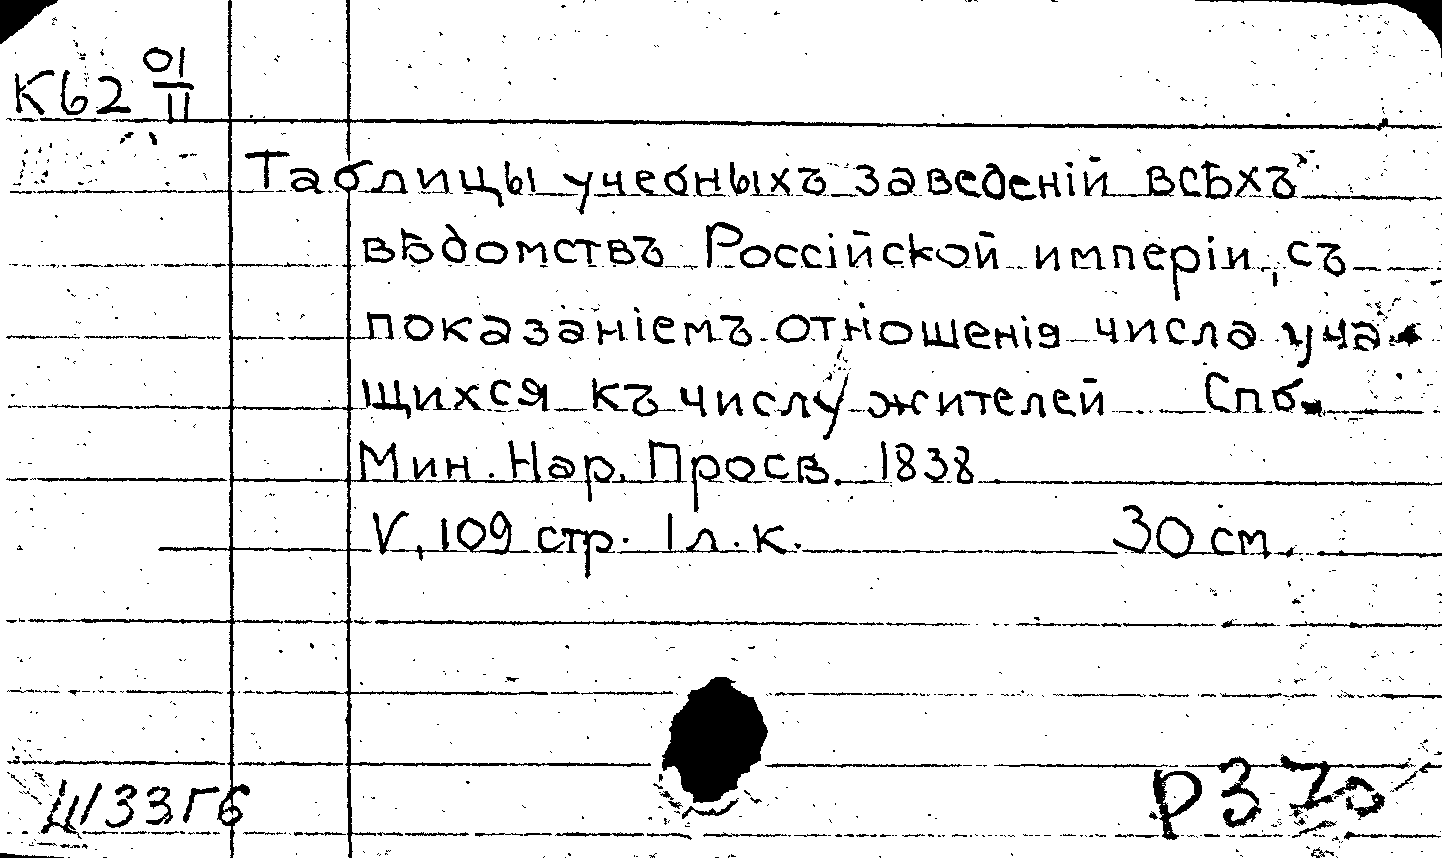 К62 01/II
Таблицы учебныхъ заведенiй всѣхъ
вѣдомствъ Россiйской имперiи, съ
показанiемъ отношенiя числа уча-
щихся къ числу жителей Спб.
Мин. Нар. Просв. 1838
V, 109 стр. 1 л. к. 30 см.
Ш33Г6
Р370